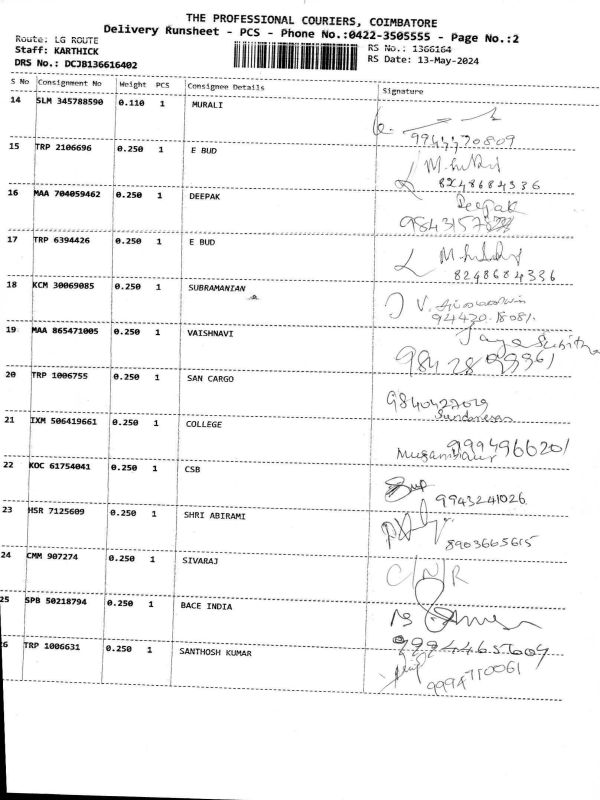 THE PROFESSIONAL COURIERS, COIMBATORE
Delivery Runsheet - PCS - Phone No.:0422-3505555 - Page No.:2
Route: LG ROUTE
RS No.: 1366164
Staff: KARTHICK
RS Date: 13-May-2024
DRS No.: DCJB136616402
S No Consignment No Weight PCS Consignee Details Signature
14 SLM 345788590 0.110 1 MURALI
15 TRP 2106696 0.250 1 E BUD
8248684336
16 MAA 704059462 0.250 1 DEEPAK Deepak
17 TRP 6394426 0.250 1 E BUD
8248684336
18 KCM 30069085 0.250 1 SUBRAMANIAN
94420 18081.
19 MAA 865471005 0.250 1 VAISHNAVI
20 TRP 1006755 0.250 1 SAN CARGO
9840427029
21 IXM 506419661 0.250 1 COLLEGE
9994966201
22 KOC 61754041 0.250 1 CSB
9943241026
23 HSR 7125609 0.250 1 SHRI ABIRAMI
8903665615
24 CMM 907274 0.250 1 SIVARAJ C/N/R
25 SPB 50218794 0.250 1 BACE INDIA
26 TRP 1006631 0.250 1 SANTHOSH KUMAR
9994770061